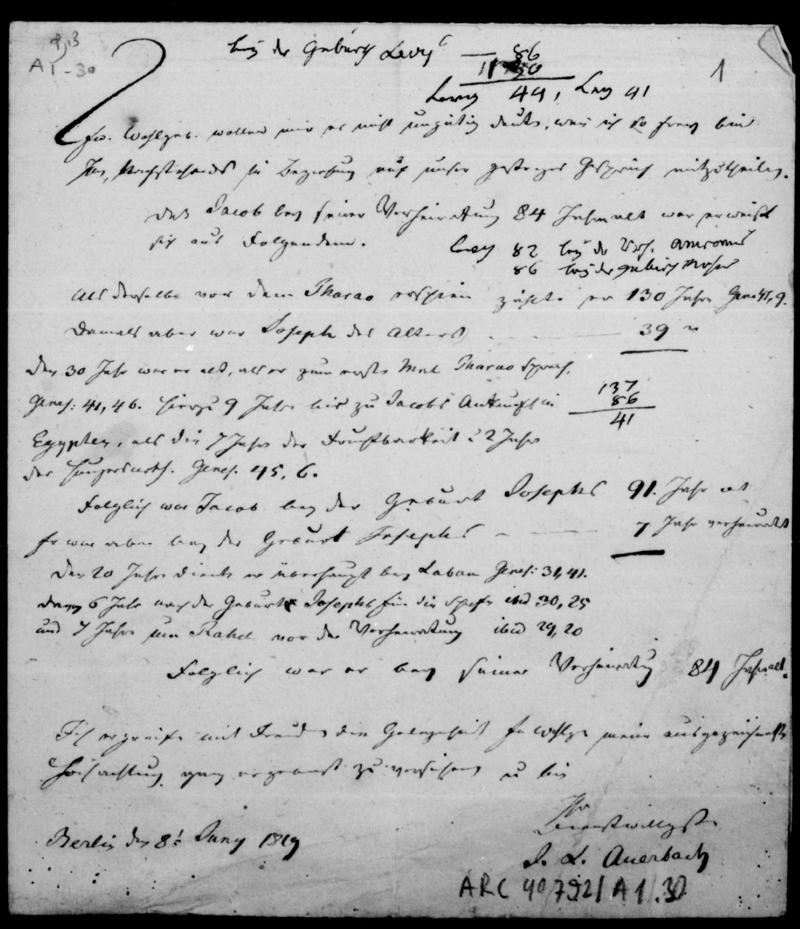 bei der Geburt Levy's — 86
A I-30
1
Levy 44, Ley 41
Ew. Wohlgeb. wollen mir es nicht ungütig deuten, wenn ich so frey bin
Ihnen Nachstehendes in Beziehung auf unser gestriges Gespräch mitzutheilen.
Daß Jacob bey seiner Verheiratung 84 Jahr alt war erweist
sich aus Folgendem.
Levy 82 bei der
86 bei der Geburt
Als derselbe vor dem Pharao erschien zählte er 130 Jahre Genes 47, 9.
Damals aber war Joseph des Alters — 39 "
Den 30 Jahr war er alt, als er zum ersten Mal Pharao sprach.
Genes: 41, 46. hierzu 9 Jahre bis zu Jacobs Ankunft in
137
86
41
Egypten, als die 7 Jahre der Fruchtbarkeit u 2 Jahre
der Hungersnoth. Genes. 45, 6.
Folglich war Jacob bey der Geburt Josephs 91. Jahr alt
Er war aber bey der Geburt Josephs — 7 Jahr verheuratet
Den 20 Jahre diente er überhaupt bey Laban Genes: 31, 41.
davon 6 Jahr nach der Geburt Josephs für die Schafe ibid 30, 25
und 7 Jahre um Rahel vor der Verheuratung ibid 29, 20
Folglich war er bey seiner Verheiratung 84 Jahr alt.
Ich ergreife mit Freuden die Gelegenheit Ew Wohlgb meine ausgezeichnete
Hochachtung ganz ergebenst zu versichern u bin
Ihr
Dienstwilligster
Berlin den 8t Juny 1819
J. L. Auerbach
ARC 4° 792/A1.30